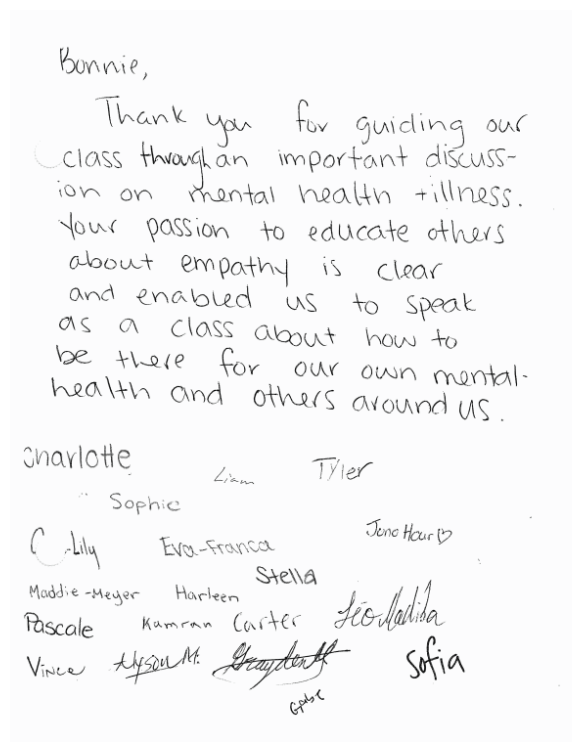 Bonnie,
Thank you for guiding our
class through an important discuss-
ion on mental health + illness.
Your passion to educate others
about empathy is clear
and enabled us to speak
as a class about how to
be there for our own mental-
health and others around us.
Charlotte
Liam
Tyler
Sophie
C-Lily
Eva-Franca
Juno Hour♡
Stella
Maddie-Meyer
Harleen
Pascale
Kamran
Carter
Léo Madiba
Vince
Alyson M.
Sofia
Gabe